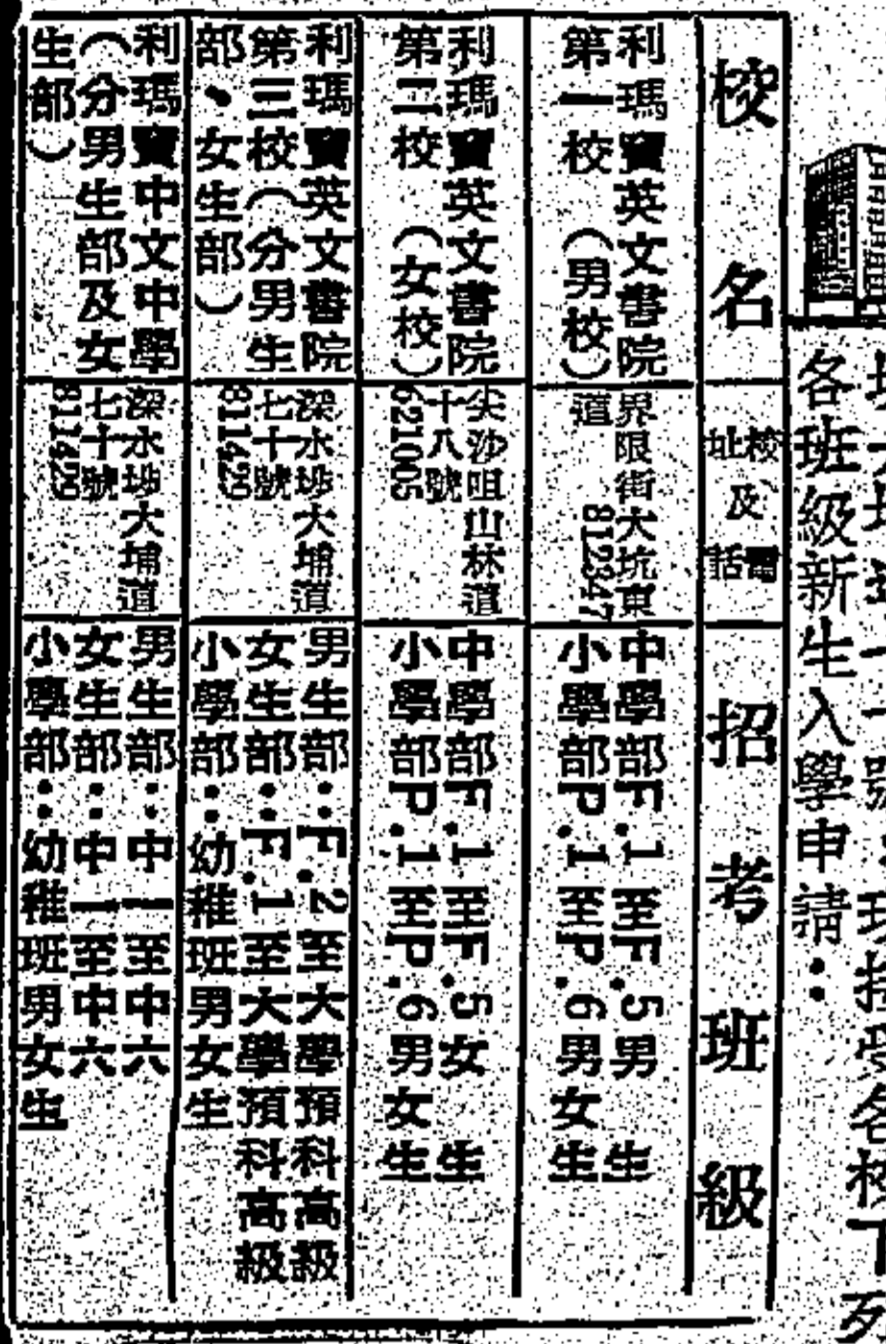 各班級新生入學申請：
校名
校址及電話
招考班級
利瑪竇英文書院
第一校（男校）
界限街大坑東
道 812347
中學部F.1至F.5男生
小學部P.1至P.6男女生
利瑪竇英文書院
第二校（女校）
尖沙咀山林道
十八號
621005
中學部F.1至F.5女生
小學部P.1至P.6男女生
利瑪竇英文書院
第三校（分男生
部，女生部）
深水埗大埔道
七十號
811429
男生部：F.2至大學預科高級
女生部：F.1至大學預科高級
小學部：幼稚班男女生
利瑪竇中文中學
（分男生部及女
生部）
深水埗大埔道
七十號
811429
男生部：中一至中六
女生部：中一至中六
小學部：幼稚班男女生